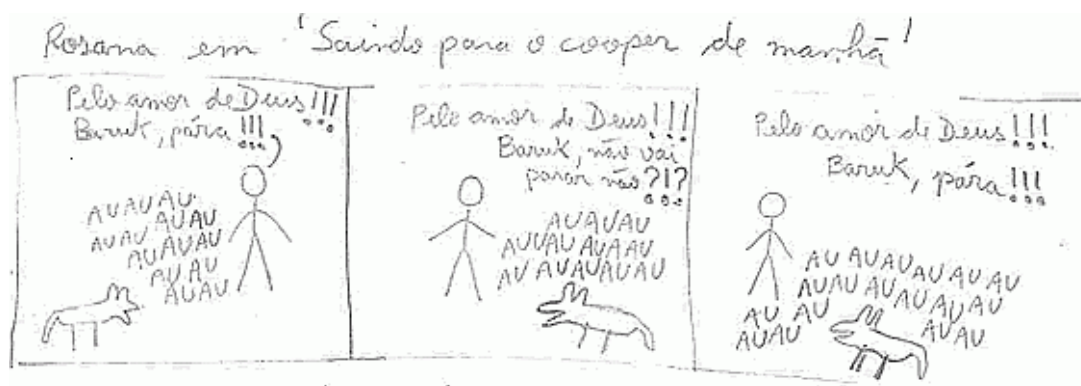 Rosana em 'Saindo para o cooper de manhã'
Pelo amor de Deus!!!
Baruk, pára!!!
AUAUAU
AUAU AUAU
AUAUAU
AUAU
AUAU
Pelo amor de Deus!!!
Baruk, não vai
parar não?!?
AUAUAU
AUUAU AUAAU
AU AUAUAUAU
Pelo amor de Deus!!!
Baruk, pára!!!
AU AUAUAUAUAU
AUAU AUAUAUAU
AU AU
AUAU
AU
AUAU